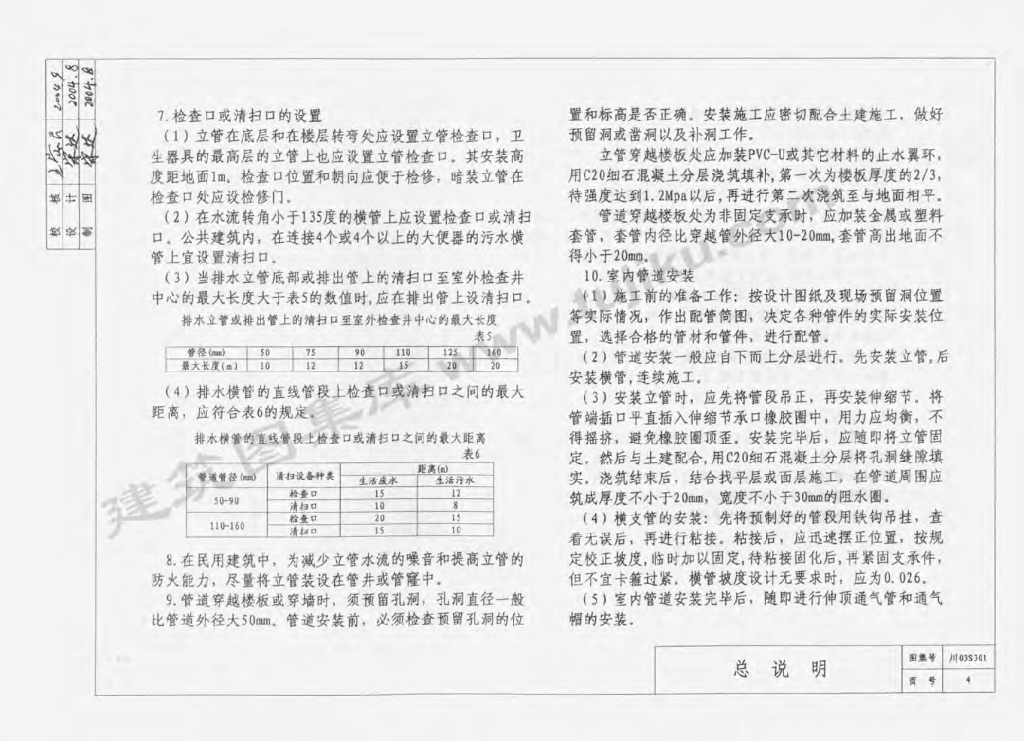 7.检查口或清扫口的设置
(1)立管在底层和在楼层转弯处应设置立管检查口，卫
生器具的最高层的立管上也应设置立管检查口。其安装高
度距地面1m。检查口位置和朝向应便于检修，暗装立管在
检查口处应设检修门。
(2)在水流转角小于135度的横管上应设置检查口或清扫
口。公共建筑内，在连接4个或4个以上的大便器的污水横
管上宜设置清扫口。
(3)当排水立管底部或排出管上的清扫口至室外检查井
中心的最大长度大于表5的数值时,应在排出管上设清扫口。
排水立管或排出管上的清扫口至室外检查井中心的最大长度
表5
管径(mm) 50 75 90 110 125 160
最大长度(m) 10 12 12 15 20 20
(4)排水横管的直线管段上检查口或清扫口之间的最大
距离，应符合表6的规定。
排水横管的直线管段上检查口或清扫口之间的最大距离
表6
管道管径(mm) 清扫设备种类 距离(m)
生活废水 生活污水
50-90 检查口 15 12
清扫口 10 8
110-160 检查口 20 15
清扫口 15 10
8.在民用建筑中，为减少立管水流的噪音和提高立管的
防火能力，尽量将立管装设在管井或管窿中。
9.管道穿越楼板或穿墙时，须预留孔洞，孔洞直径一般
比管道外径大50mm。管道安装前，必须检查预留孔洞的位
置和标高是否正确。安装施工应密切配合土建施工，做好
预留洞或凿洞以及补洞工作。
立管穿越楼板处应加装PVC-U或其它材料的止水翼环，
用C20细石混凝土分层浇筑填补,第一次为楼板厚度的2/3，
待强度达到1.2Mpa以后,再进行第二次浇筑至与地面相平。
管道穿越楼板处为非固定支承时，应加装金属或塑料
套管，套管内径比穿越管外径大10-20mm,套管高出地面不
得小于20mm。
10.室内管道安装
(1)施工前的准备工作：按设计图纸及现场预留洞位置
等实际情况，作出配管简图，决定各种管件的实际安装位
置，选择合格的管材和管件，进行配管。
(2)管道安装一般应自下而上分层进行。先安装立管,后
安装横管,连续施工。
(3)安装立管时，应先将管段吊正，再安装伸缩节。将
管端插口平直插入伸缩节承口橡胶圈中，用力应均衡，不
得摇挤，避免橡胶圈顶歪。安装完毕后，应随即将立管固
定。然后与土建配合,用C20细石混凝土分层将孔洞缝隙填
实。浇筑结束后，结合找平层或面层施工，在管道周围应
筑成厚度不小于20mm，宽度不小于30mm的阻水圈。
(4)横支管的安装：先将预制好的管段用铁钩吊挂，查
看无误后，再进行粘接。粘接后，应迅速摆正位置，按规
定校正坡度,临时加以固定,待粘接固化后,再紧固支承件，
但不宜卡箍过紧。横管坡度设计无要求时，应为0.026。
(5)室内管道安装完毕后，随即进行伸顶通气管和通气
帽的安装。
总说明
图集号 川03S301
页号 4
校核 2004.9
设计 2004.8
制图 2004.8
建筑图集库 www.tujiku.com